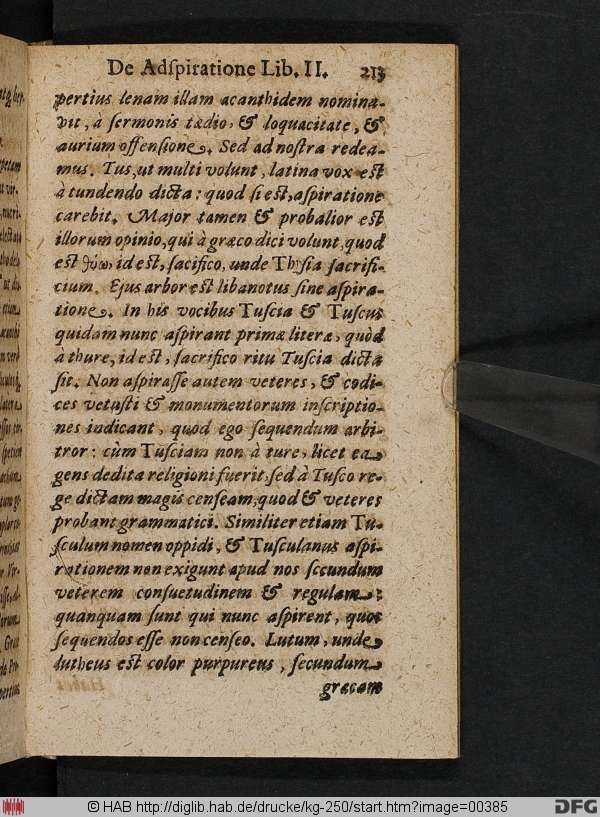 De Adſpiratione Lib. II. 213
pertius lenam illam acanthidem nomina-
vit, à ſermonis tædio, & loquacitate, &
aurium offenſione. Sed ad noſtra redea-
mus. Tus, ut multi volunt, latina vox est
à tundendo dicta: quod ſi eſt, aſpiratione
carebit. Major tamen & probalior est
illorum opinio, qui à græco dici volunt, quod
est θύω, id est, ſacifico, unde Thyſia ſacrifi-
cium. Ejus arbor est libanotus ſine aſpira-
tione. In his vocibus Tuſcia & Tuſcus
quidam nunc aſpirant primæ literæ, quòd
à thure, id est, ſacrifico ritu Tuſcia dicta
ſit. Non aſpiraſſe autem veteres, & codi-
ces vetuſti & monumentorum inſcriptio-
nes indicant, quod ego ſequendum arbi-
tror: cùm Tuſciam non à ture, licet ea
gens dedita religioni fuerit, ſed à Tuſco re-
ge dictam magis cenſeam, quod & veteres
probant grammatici. Similiter etiam Tu-
ſculum nomen oppidi, & Tuſculanus aſpi-
rationem non exigunt apud nos ſecundum
veterem conſuetudinem & regulam:
quanquam ſunt qui nunc aſpirent, quos
ſequendos eſſe non cenſeo. Lutum, unde
lutheus est color purpureus, ſecundum
græcam
© HAB http://diglib.hab.de/drucke/kg-250/start.htm?image=00385
DFG